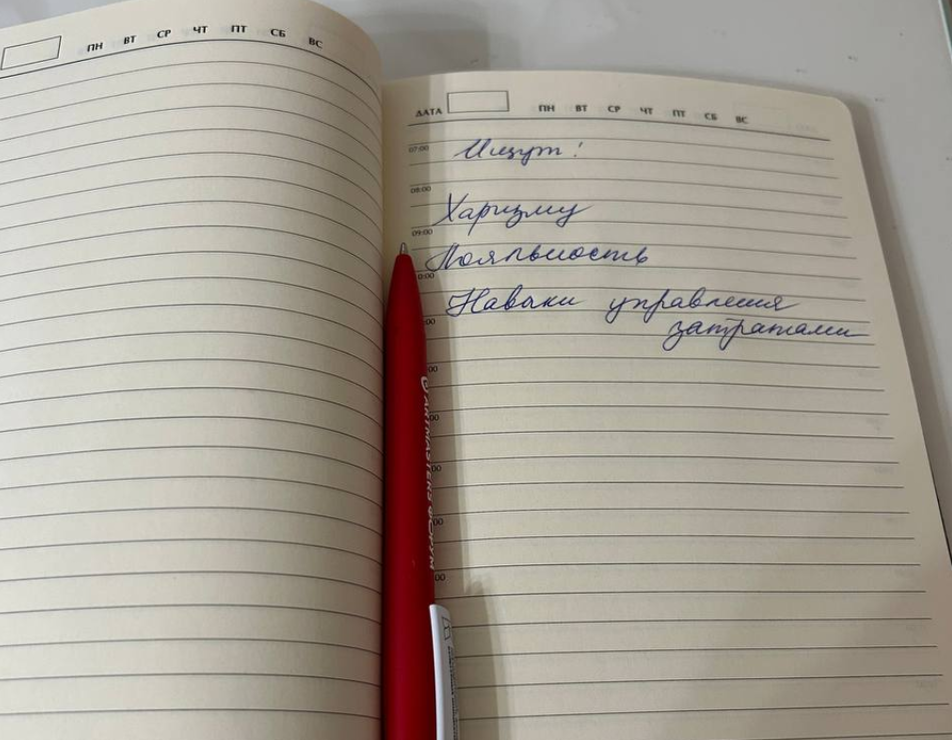 ПН ВТ СР ЧТ ПТ СБ ВС
ДАТА ПН ВТ СР ЧТ ПТ СБ ВС
07:00 Ищут!
08:00
Харизму
09:00
Лояльность
Навыки управления
затратами